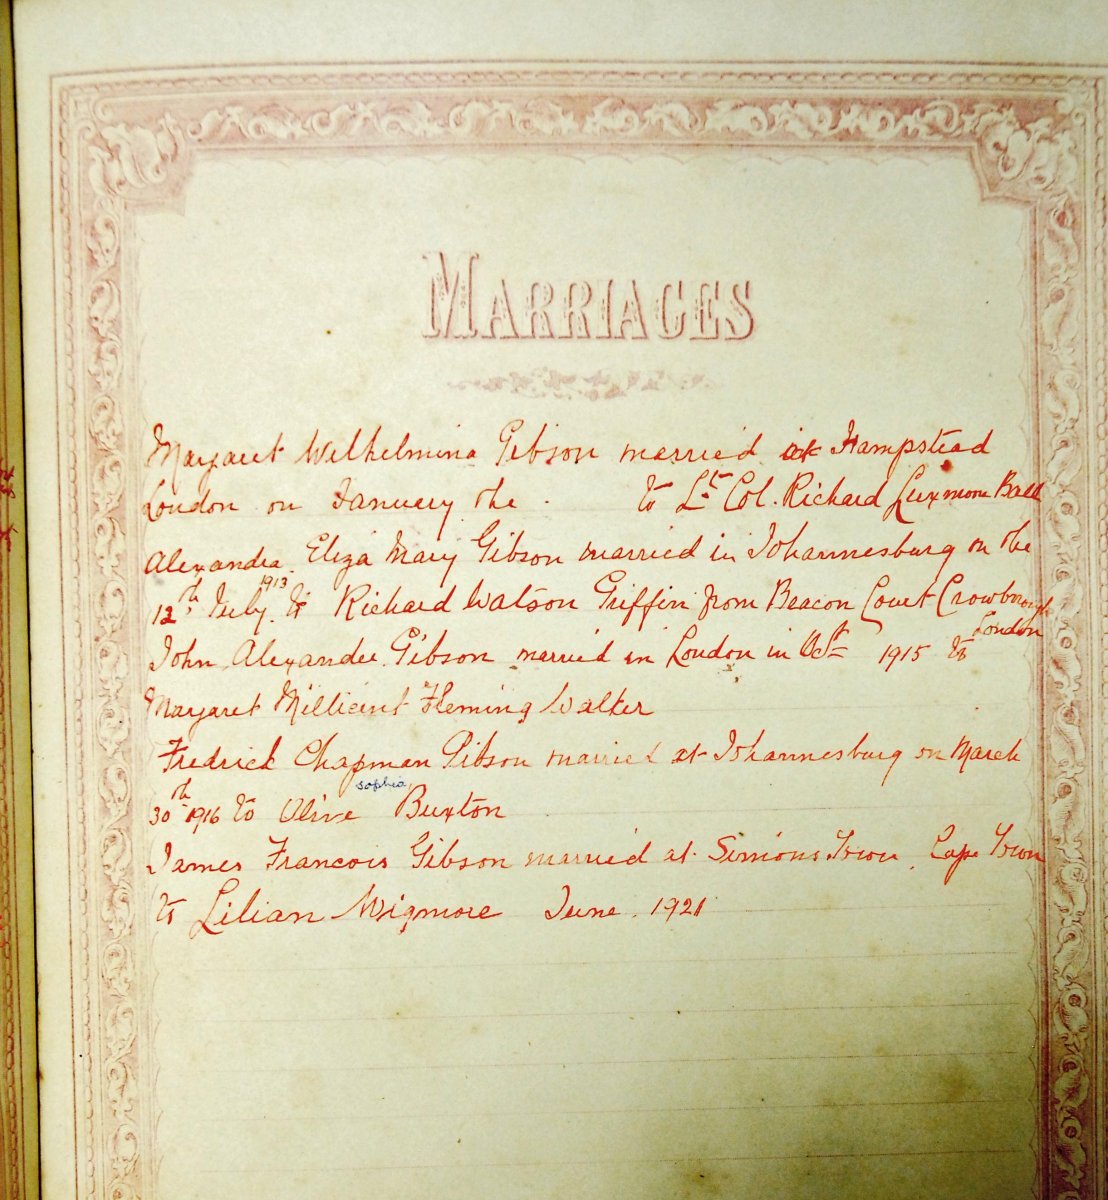 MARRIAGES
Margaret Wilhelmina Gibson married at Hampstead
London on January the . to Lt. Col. Richard Luxmore Ball
Alexandra Eliza Mary Gibson married in Johannesburg on the
12th July 1913 to Richard Watson Griffin from Beacon Court Crowborough
London
John Alexander Gibson married in London in Oct 1915 to
Margaret Millicent Fleming Walker
Fredrick Chapman Gibson married at Johannesburg on March
30th 1916 to Olive Sophia Buxton
James Francois Gibson married at Simons Town Cape Town
to Lilian Wigmore June 1921